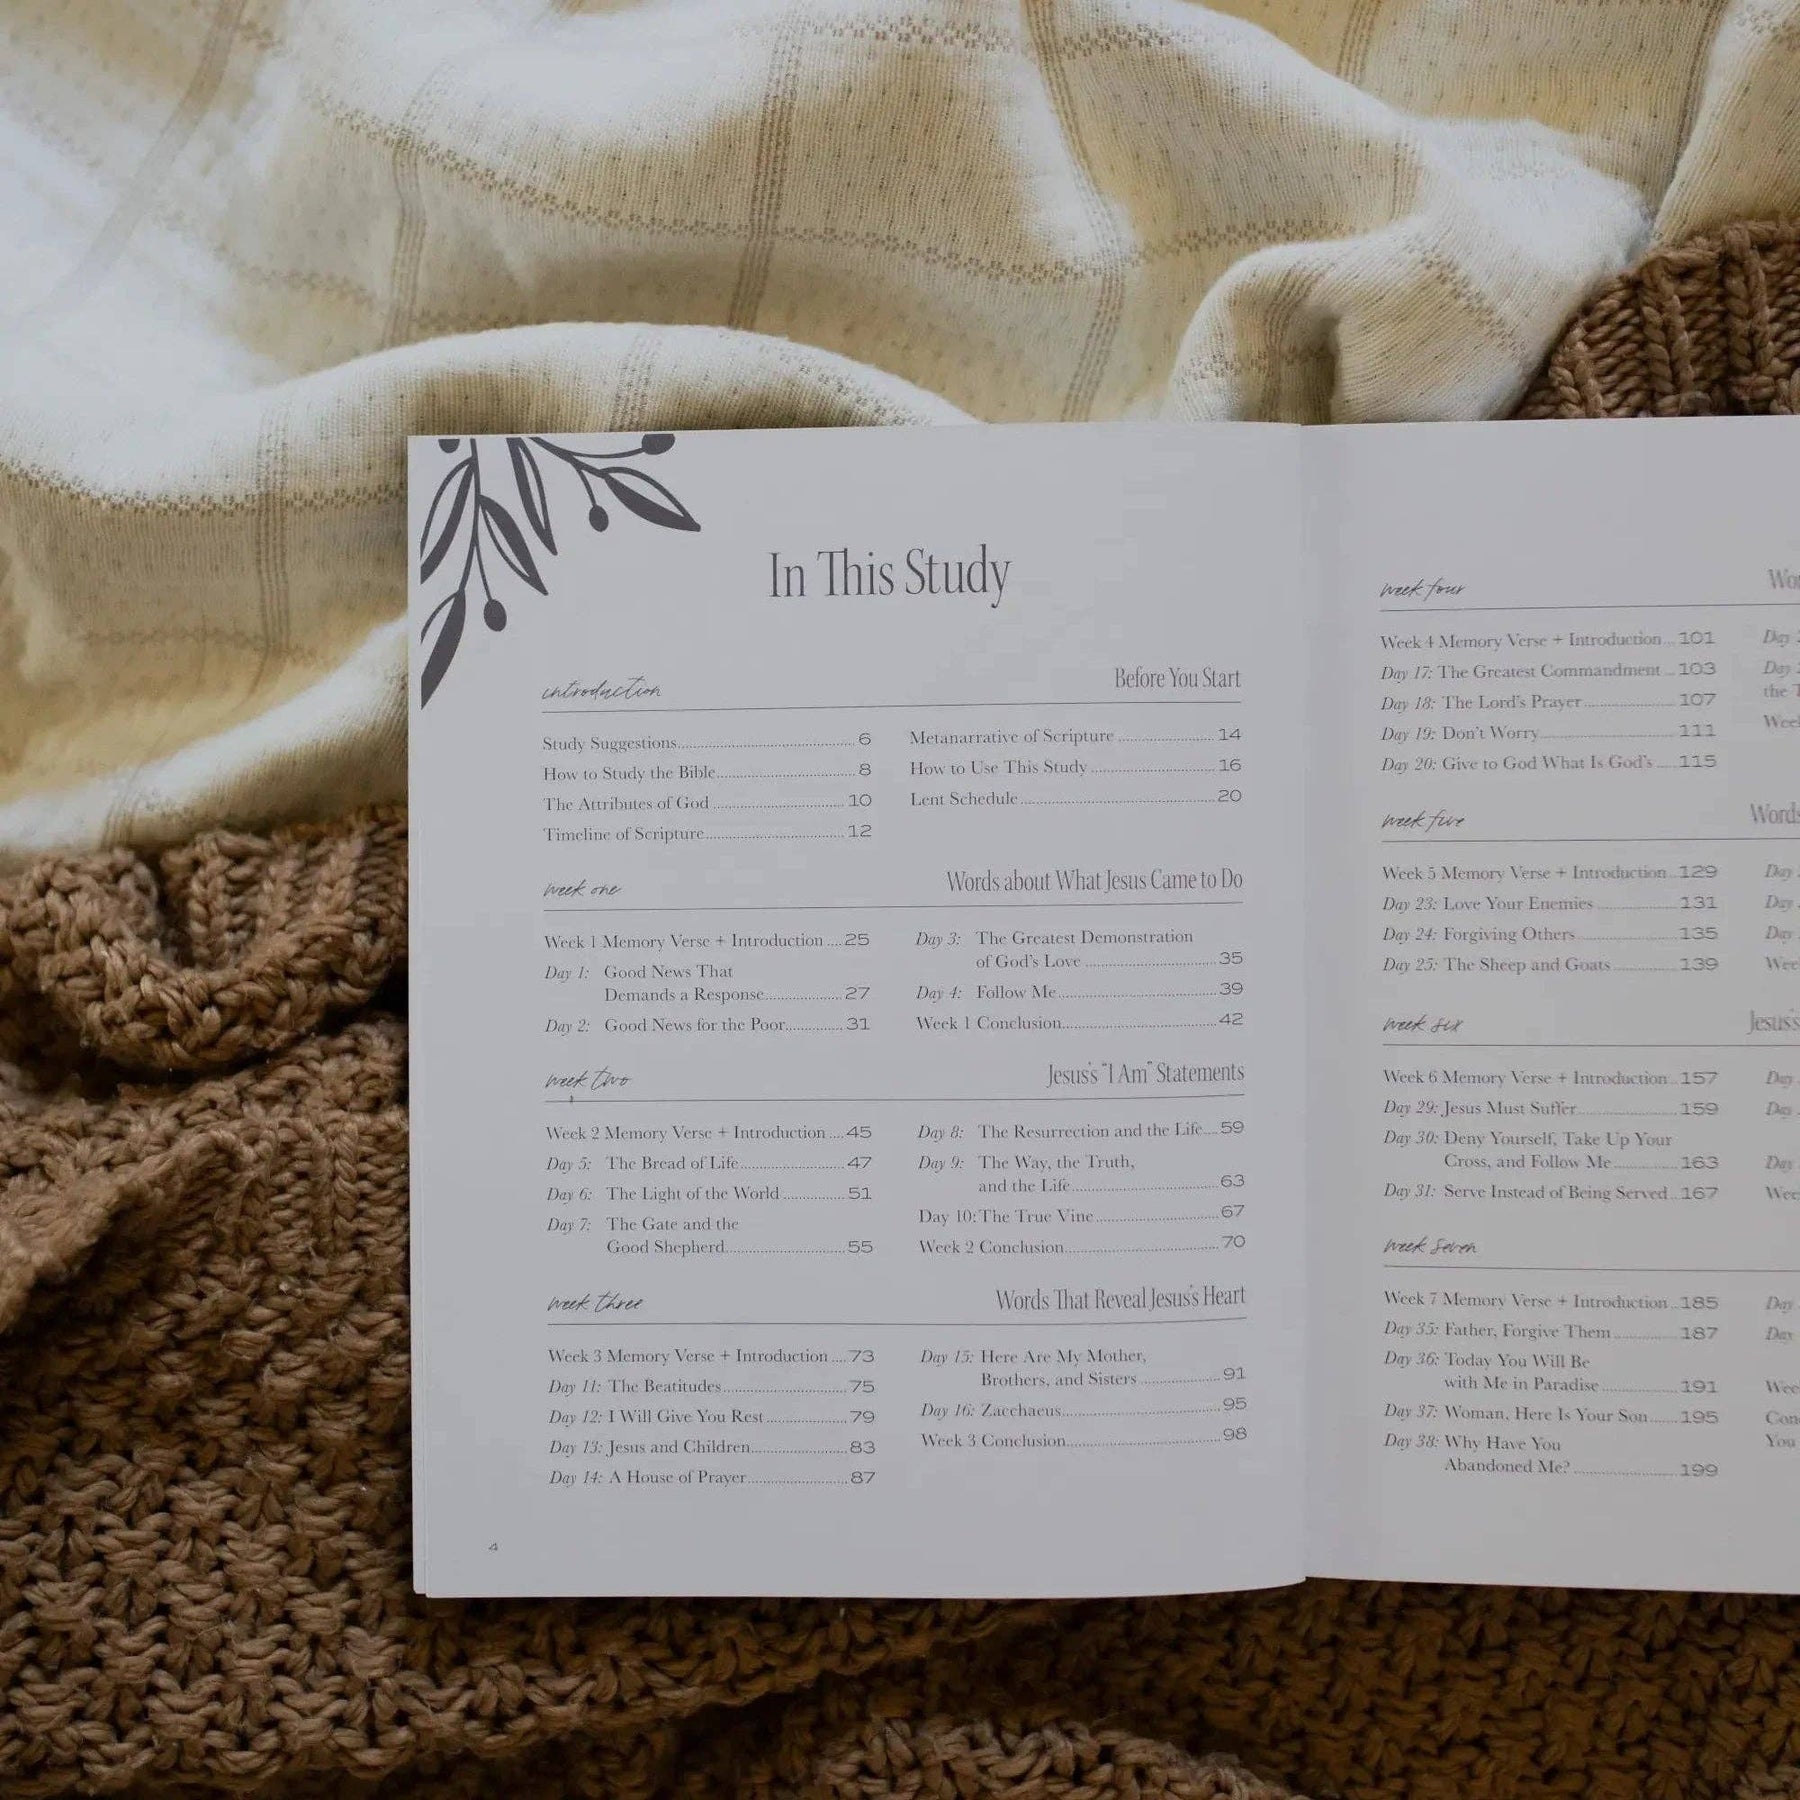 In This Study
introduction
Before You Start
Study Suggestions 6
How to Study the Bible 8
The Attributes of God 10
Timeline of Scripture 12
Metanarrative of Scripture 14
How to Use This Study 16
Lent Schedule 20
week one
Words about What Jesus Came to Do
Week 1 Memory Verse + Introduction 25
Day 1: Good News That
Demands a Response 27
Day 2: Good News for the Poor 31
Day 3: The Greatest Demonstration
of God's Love 35
Day 4: Follow Me 39
Week 1 Conclusion 42
week two
Jesus's "I Am" Statements
Week 2 Memory Verse + Introduction 45
Day 5: The Bread of Life 47
Day 6: The Light of the World 51
Day 7: The Gate and the
Good Shepherd 55
Day 8: The Resurrection and the Life 59
Day 9: The Way, the Truth,
and the Life 63
Day 10: The True Vine 67
Week 2 Conclusion 70
week three
Words That Reveal Jesus's Heart
Week 3 Memory Verse + Introduction 73
Day 11: The Beatitudes 75
Day 12: I Will Give You Rest 79
Day 13: Jesus and Children 83
Day 14: A House of Prayer 87
Day 15: Here Are My Mother,
Brothers, and Sisters 91
Day 16: Zacchaeus 95
Week 3 Conclusion 98
4
week four
Week 4 Memory Verse + Introduction 101
Day 17: The Greatest Commandment 103
Day 18: The Lord's Prayer 107
Day 19: Don't Worry 111
Day 20: Give to God What Is God's 115
Day
Day
the
week five
Words
Week 5 Memory Verse + Introduction 129
Day 23: Love Your Enemies 131
Day 24: Forgiving Others 135
Day 25: The Sheep and Goats 139
Day
Day
Day
week six
Jesus's
Week 6 Memory Verse + Introduction 157
Day 29: Jesus Must Suffer 159
Day 30: Deny Yourself, Take Up Your
Cross, and Follow Me 163
Day 31: Serve Instead of Being Served 167
Day
Day
Day
week seven
Week 7 Memory Verse + Introduction 185
Day 35: Father, Forgive Them 187
Day 36: Today You Will Be
with Me in Paradise 191
Day 37: Woman, Here Is Your Son 195
Day 38: Why Have You
Abandoned Me? 199
Day
Day
You